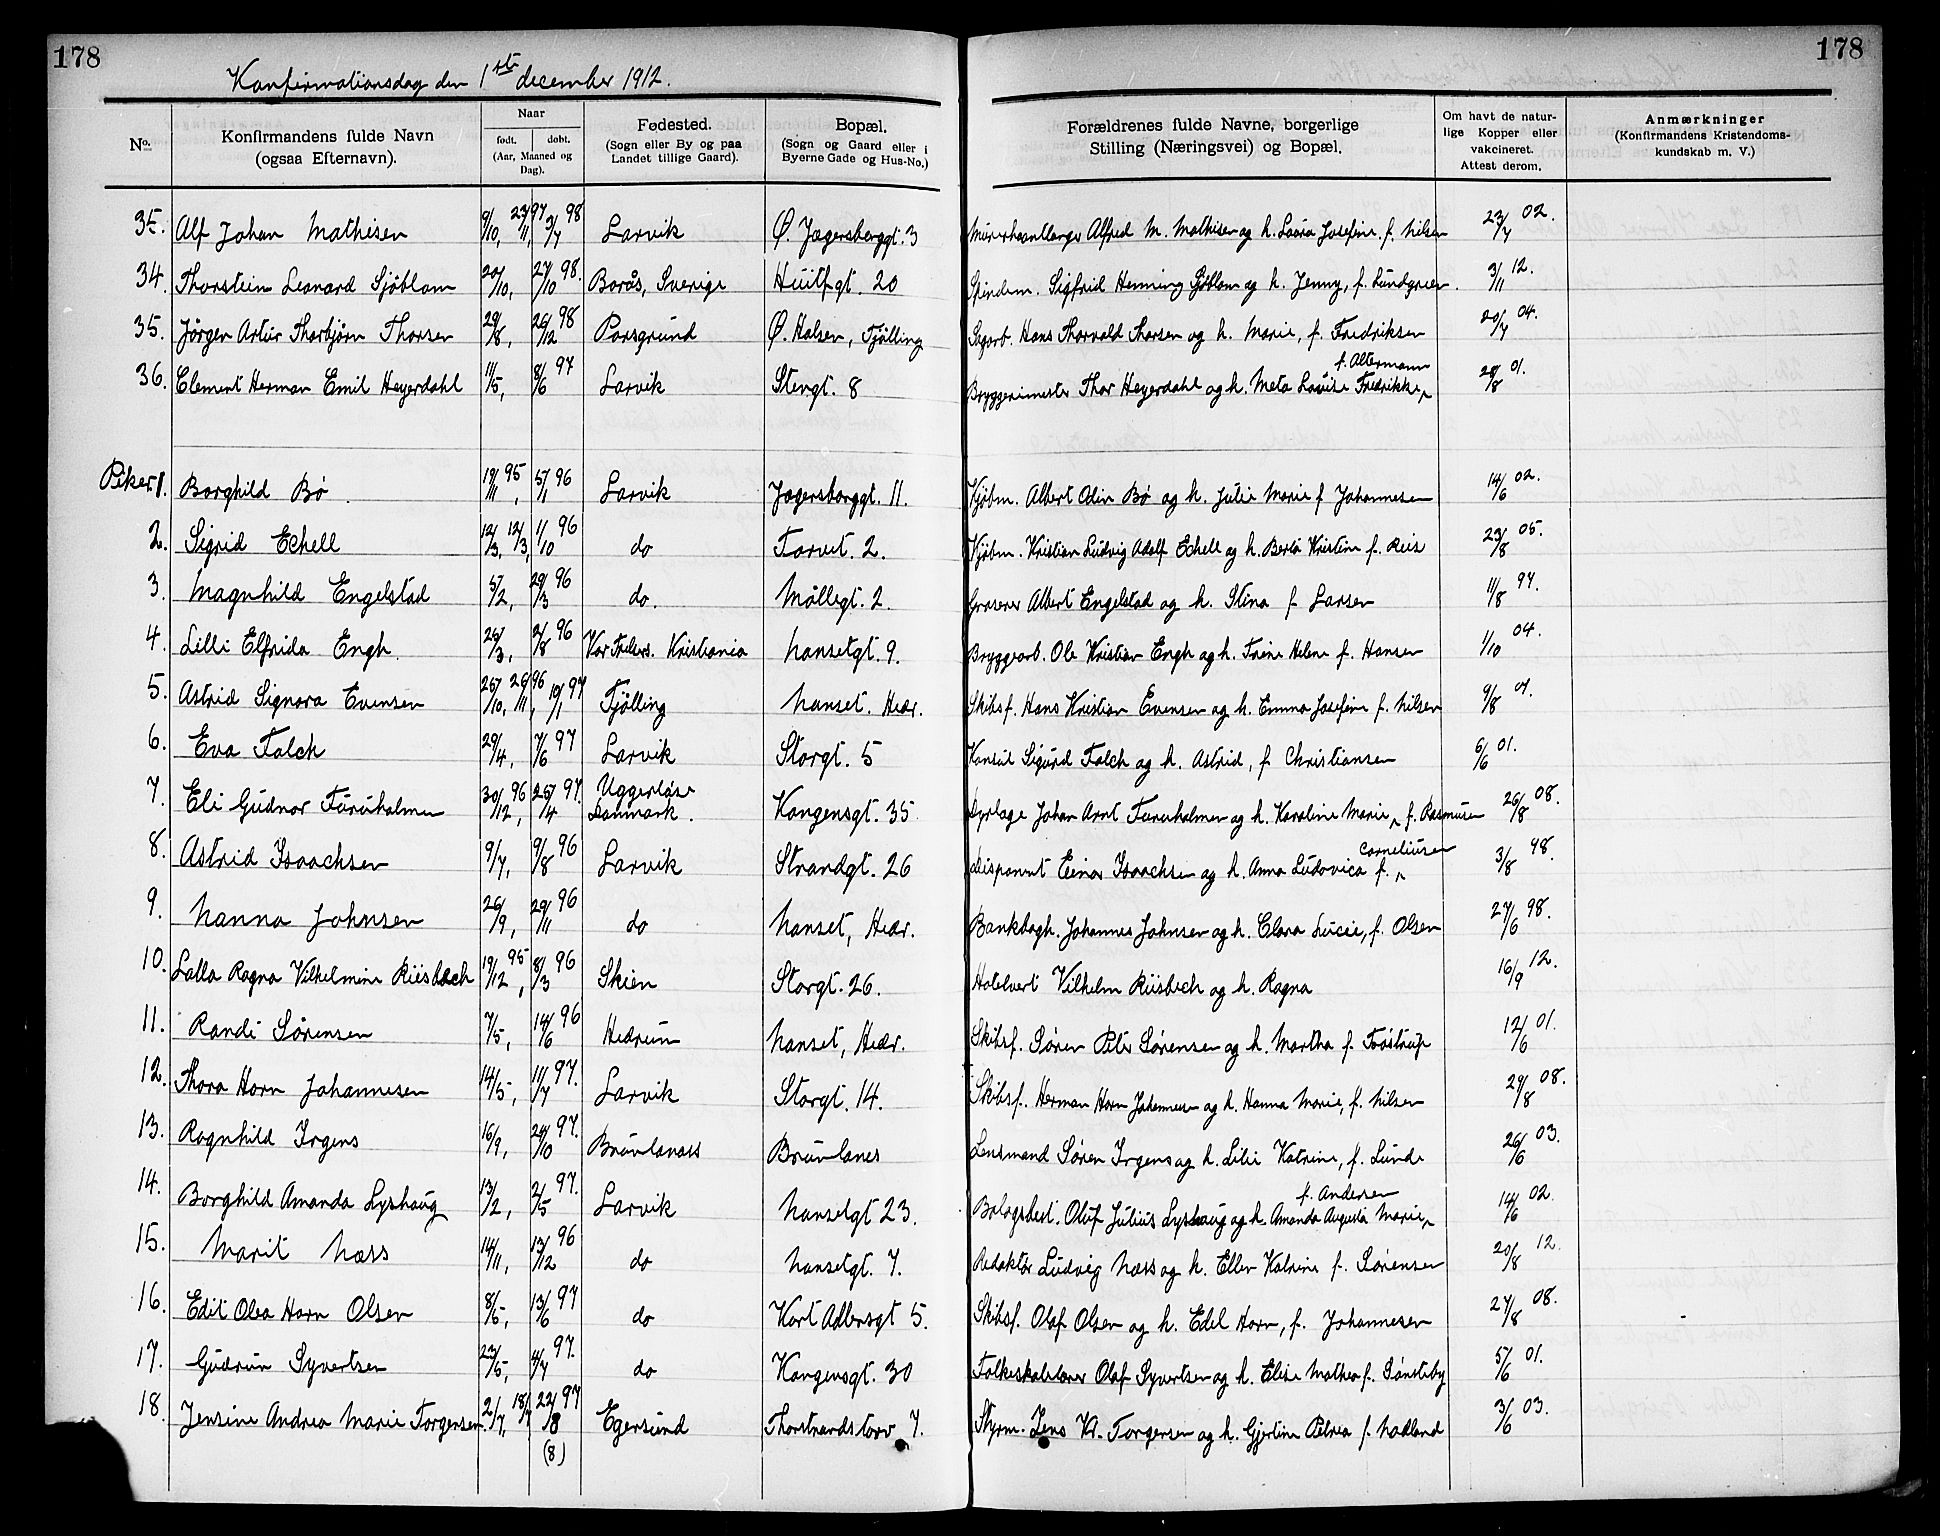 178
178
Konfirmationsdag den 1ste december 1912.
No.
Konfirmandens fulde Navn
(ogsaa Efternavn).
Naar
født. døbt.
(Aar, Maaned og
Dag).
Fødested.
(Sogn eller By og paa
Landet tillige Gaard).
Bopæl.
(Sogn og Gaard eller i
Byerne Gade og Hus-No.)
Forældrenes fulde Navne, borgerlige
Stilling (Næringsvei) og Bopæl.
Om havt de natur-
lige Kopper eller
vakcineret.
Attest derom.
Anmærkninger
(Konfirmandens Kristendoms-
kundskab m. V.)
35. Alf Johan Mathisen 9/10, 23/11, 97 3/7 98 Larvik Ø. Jægersborggt. 3 Murerhaantlanger Alfred M. Mathisen og h. Laura Josefine f. Nilsen 23/7 02.
34. Thorstein Leonard Sjöblom 20/10, 27/10 98. Borås, Sverige Huitfgt. 20 Spindem. Sigfrid Henning Sjöblom og h. Jenny, f. Lundgreen. 3/11 12.
35. Jörgen Artur Thorbjörn Thorsen 29/8, 26/12 98 Porsgrund Ø. Halsen, Tjölling Sagarb. Hans Thorvald Thorsen og h. Marie, f. Fredriksen 20/7 04.
36. Clement Herman Emil Heyerdahl 11/5, 8/6 97 Larvik Stengt. 8 Bryggerimester Thor Heyerdahl og h. Meta Louise Fredrikke, f. Altermann 28/8 01.
Piker.
1. Borghild Bø 19/11 95, 5/1 96 Larvik Jægersborggt. 11. Kjøbm. Albert Odin Bø og h. Julie Marie f Johannesen 14/6 02.
2. Sigrid Echell 12/3, 12/3, 1/10 96 do Torvet. 2. Kjøbm. Kristian Ludvig Adolf Echell og h. Berta Kristine f. Reis 23/8 05.
3. Magnhild Engelstad 5/2, 29/3 96 do. Möllegt. 2. Graverer Albert Engelstad og h. Stina f Larsen 11/8 97.
4. Lilli Elfrida Engh 26/3, 2/8 96 Vor Frelsers. Kristiania Nansetgt. 9. Bryggearb. Ole Kristian Engh og h. Trine Helene f. Hansen 1/10 04.
5. Astrid Signora Evensen 25/10, 26/11 96, 10/1 97 Tjölling Nanset. Hedr. Skibsf. Hans Kristian Evensen og h. Emma Josefine f. Nilsen 9/8 07.
6. Eva Falch 29/4, 7/6 97 Larvik Storgt. 5 Konsul Sigurd Falch og h. Astrid, f Christiansen 6/6 01.
7. Eli Gudnor Furuholmen 30/12 96, 25/4 97. Uggerløse Danmark. Kongensgt. 35 Dyrlæge Johan Arnt Furuholmen og h. Karoline Marie, f. Rasmusen 26/8 08.
8. Astrid Isaachsen 9/7, 9/8 96 Larvik Strandgt. 26 Disponent Einar Isaachsen og h. Anna Ludovica f. Corneliusen 3/8 98.
9. Nanna Johnsen 26/9, 29/11 96 do Nanset, Hedr. Bankbogh. Johannes Johnsen og h. Clara Lucie, f. Olsen 27/6 98.
10. Lalla Ragna Vilhelmine Riisbech 19/12 95, 8/3 96 Skien Storgt. 26. Hotelvert Vilhelm Riisbech og h. Ragna 16/9 12.
11. Randi Sörensen 7/5, 14/6 96 Hedrum Nanset, Hedr. Skibsf. Sören Peter Sörensen og h. Martha f. Tøstrup 12/6 01.
12. Thora Horn Johannesen 14/5, 11/7 97. Larvik Storgt. 14. Skibsf. Herman Horn Johannesen og h. Hanna Marie, f. Nilsen 29/8 08.
13. Ragnhild Irgens 16/9, 24/10 97. Brunlanæss Brunlanes Lensmand Sören Irgens og h. Lilie Katrine, f. Lunde 26/6 03.
14. Borghild Amanda Lyshaug 13/2, 2/5 97. Larvik Nansetgt 23. Bolagsbest. Oluf Julius Lyshaug og h. Amanda Augusta Marie, f. Andersen 14/6 02.
15. Marit Næss 14/11, 13/12 96 do Nansetgt. 7. Redaktör Ludvig Næss og h. Ellen Katrine f. Sörensen 20/8 12.
16. Edit Olea Horn Olsen 8/5, 13/6 97 do Kort Adlersgt 5. Skibsf. Olaf Olsen og h. Edel Horn, f. Johannesen 27/8 08.
17. Gudrun Syvertsen 23/5, 4/7 97. do Kongensgt. 30 Folkeskolelærer Olaf Syvertsen og h. Elise Mathea f. Sönsteby 5/6 01.
18. Jensine Andrea Marie Torgersen 2/7, 18/7, 22/8 97 (8) Egersund Thorstrandstorv 7. Styrm. Jens Kr. Torgersen og h. Gjertine Petrea f. Nodland 3/6 03.